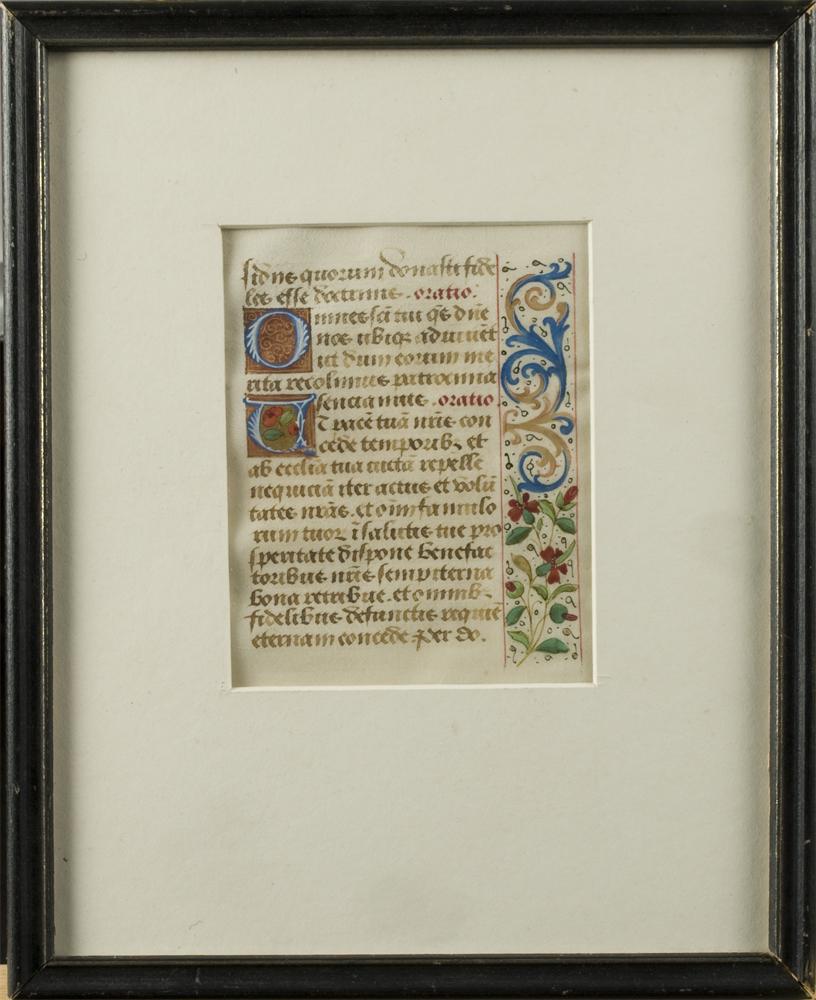 sidiis quorum donasti fide
les esse doctrinis. oratio.
Omnes sc̃i tui q̃s dñe
nos ubiq̨ adiuuẽt
ut dum eorum me
rita recolimus patrocinia
senciamus. oratio
Et pacẽ tuã nr̃is con
cede temporib₉ et
ab ecclĩa tua cũctã repelle
nequiciã iter actus et volũ
tates nr̃as. et oĩm famulo
rum tuoꝝ ĩ salutis tue pro
speritate dispone benefac
toribus nr̃is sempiterna
bona retribue. et omnib₉
fidelibus defunctis requiẽ
eternam concede. Per do.